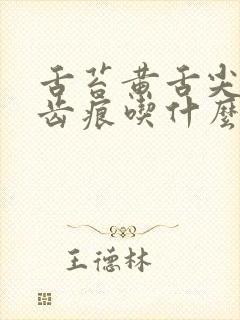 舌苔黄舌尖
齿痕喫什麽
王德林